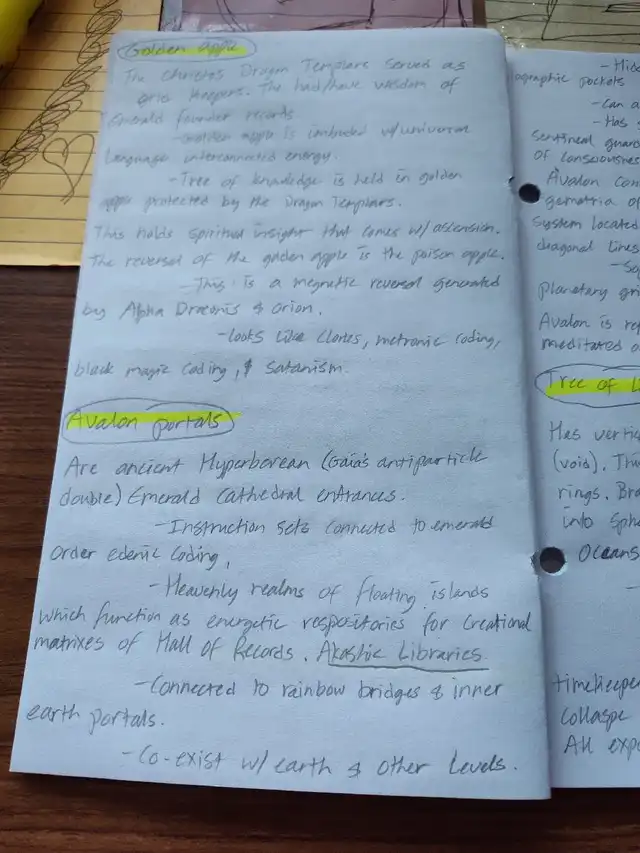 Golden apple
The Christos Dragon Templars served as
grid keepers. The had/have wisdom of
Emerald founder records
- Golden apple is imbuded w/universal
Language interconnected energy.
- Tree of knowledge is held in golden
apple protected by the Dragon Templars.
This holds spiritual insight that comes w/ascension.
The reversal of the golden apple is the poison apple.
- This is a megnetic reversal generated
by Alpha Draconis & Orion.
- Looks Like Clones, metronic coding,
black magic Coding, & Satanism.
Avalon portals
Are ancient Hyperborean (Gaia's antiparticle
double) Emerald Cathedral entrances.
- Instruction sets connected to emerald
Order edenic Coding,
- Heavenly realms of floating islands
which function as energetic respositories for Creational
matrixes of Hall of Records. Akashic Libraries
- Connected to rainbow bridges & inner
earth portals.
- Co-exist w/ earth & other Levels.
- Hidd
ographic pockets
- Can a
- Has
sentinel guar
of Consciousnes
Avalon Con
gematria of
System Located
diagonal Lines
- So
planetary gri
Avalon is rep
meditated o
Tree of Li
Has verti
(void). Th
rings. Bra
into Sphe
Oceans
timekeepe
Collaspe
All exp